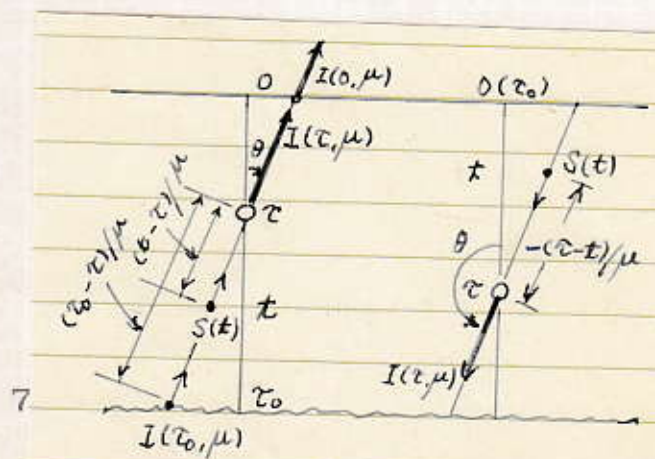 0 I(0,μ) 0(τ₀)
I(τ,μ)
θ t S(t)
(τ₀-τ)/μ (t-τ)/μ τ
θ -(τ-t)/μ
S(t) t τ
I(τ,μ)
7 τ₀
I(τ₀,μ)